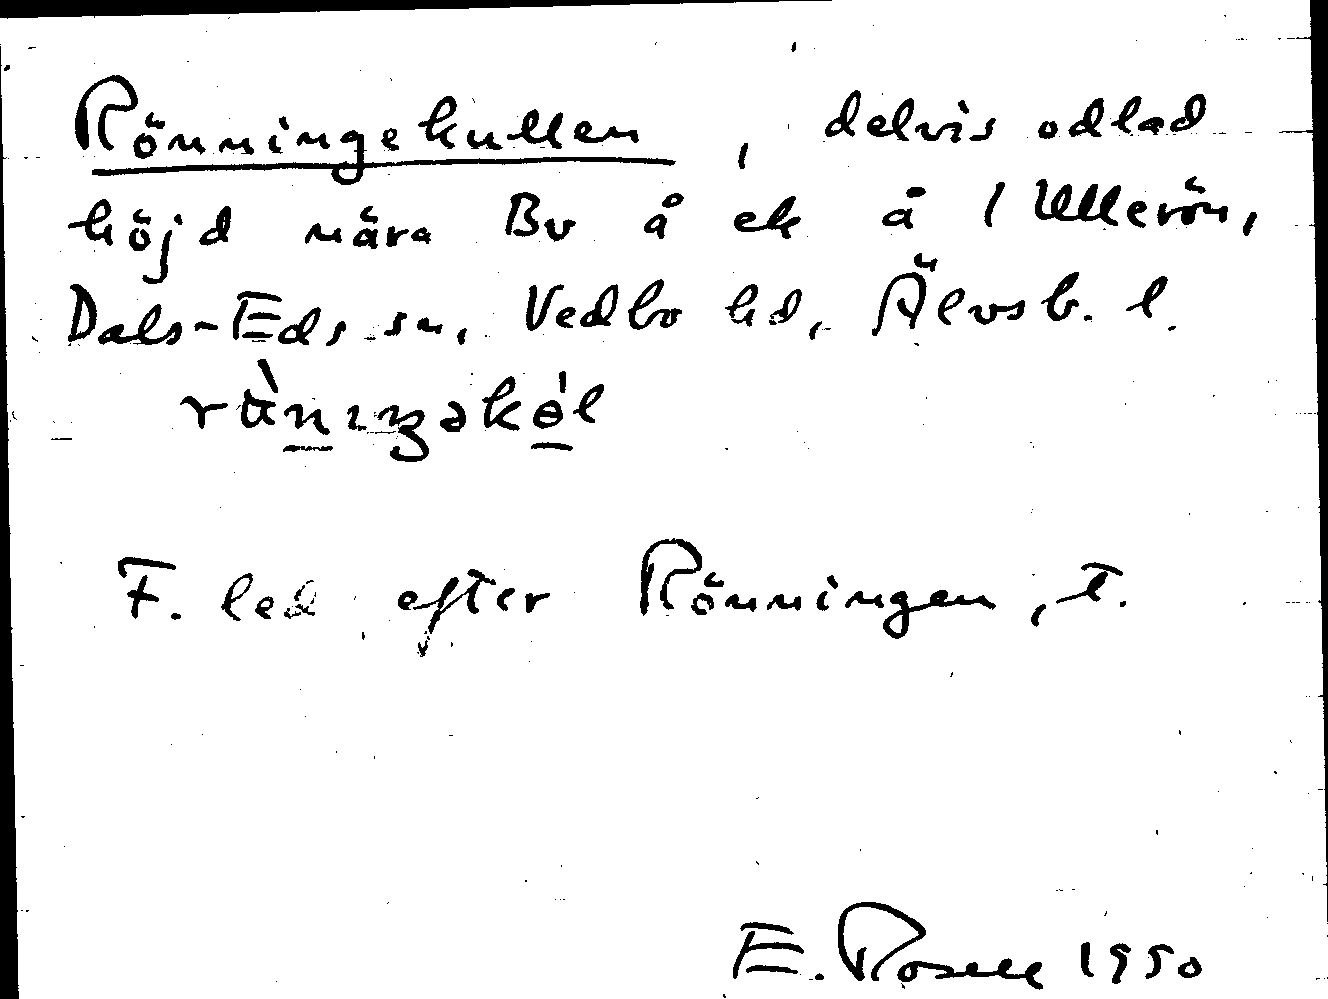 Rönningekullen, delvis odlad
höjd nära Bv å ek å 1 Ullerön,
Dals-Eds sn, Vedbo hd, Älvsb. l.
F. led efter Rönningen, t.
E. Rosell 1950